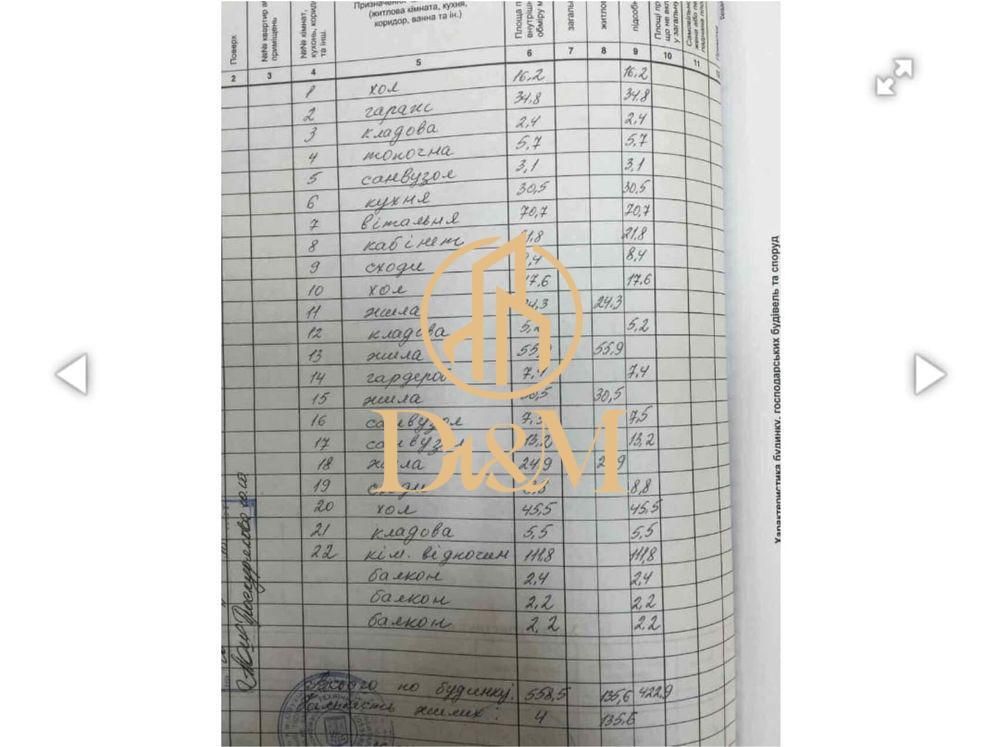 Призначення
(житлова кімната, кухня,
коридор, ванна та ін.)
Поверх
№№ квартир
приміщень
№№ кімнат,
кухонь, корид
та інш.
Площа п
внутрішн
обміру м
загаль
житлов
підсоб
Площі пр
що не вкл
у загальну
Самовільно
2 3 4 5 6 7 8 9 10 11
1 хол 16,2 16,2
2 гараж 34,8 34,8
3 кладова 2,4 2,4
4 топочна 5,7 5,7
5 санвузол 3,1 3,1
6 кухня 30,5 30,5
7 вітальня 70,7 70,7
8 кабінет 21,8
9 сходи 8,4
10 хол 17.6 17.6
11 жила 24.3
12 кладова 5,2 5,2
13 жила 55,9 55,9
14 гардероб 7,4 7,4
15 жила 30,5
16 санвузол 7,5
17 санвузол 13,2 13,2
18 жила 24,9
19 сходи 8,8
20 хол 45,5 45,5
21 кладова 5,5 5,5
22 кім. відпочин 111,8 111,8
балкон 2,4 2,4
балкон 2,2 2,2
балкон 2,2 2,2
Всього по будинку: 558,5 135,6 422,9
Кількість жилих: 4 135,6
D&M
Характеристика будинку, господарських будівель та споруд